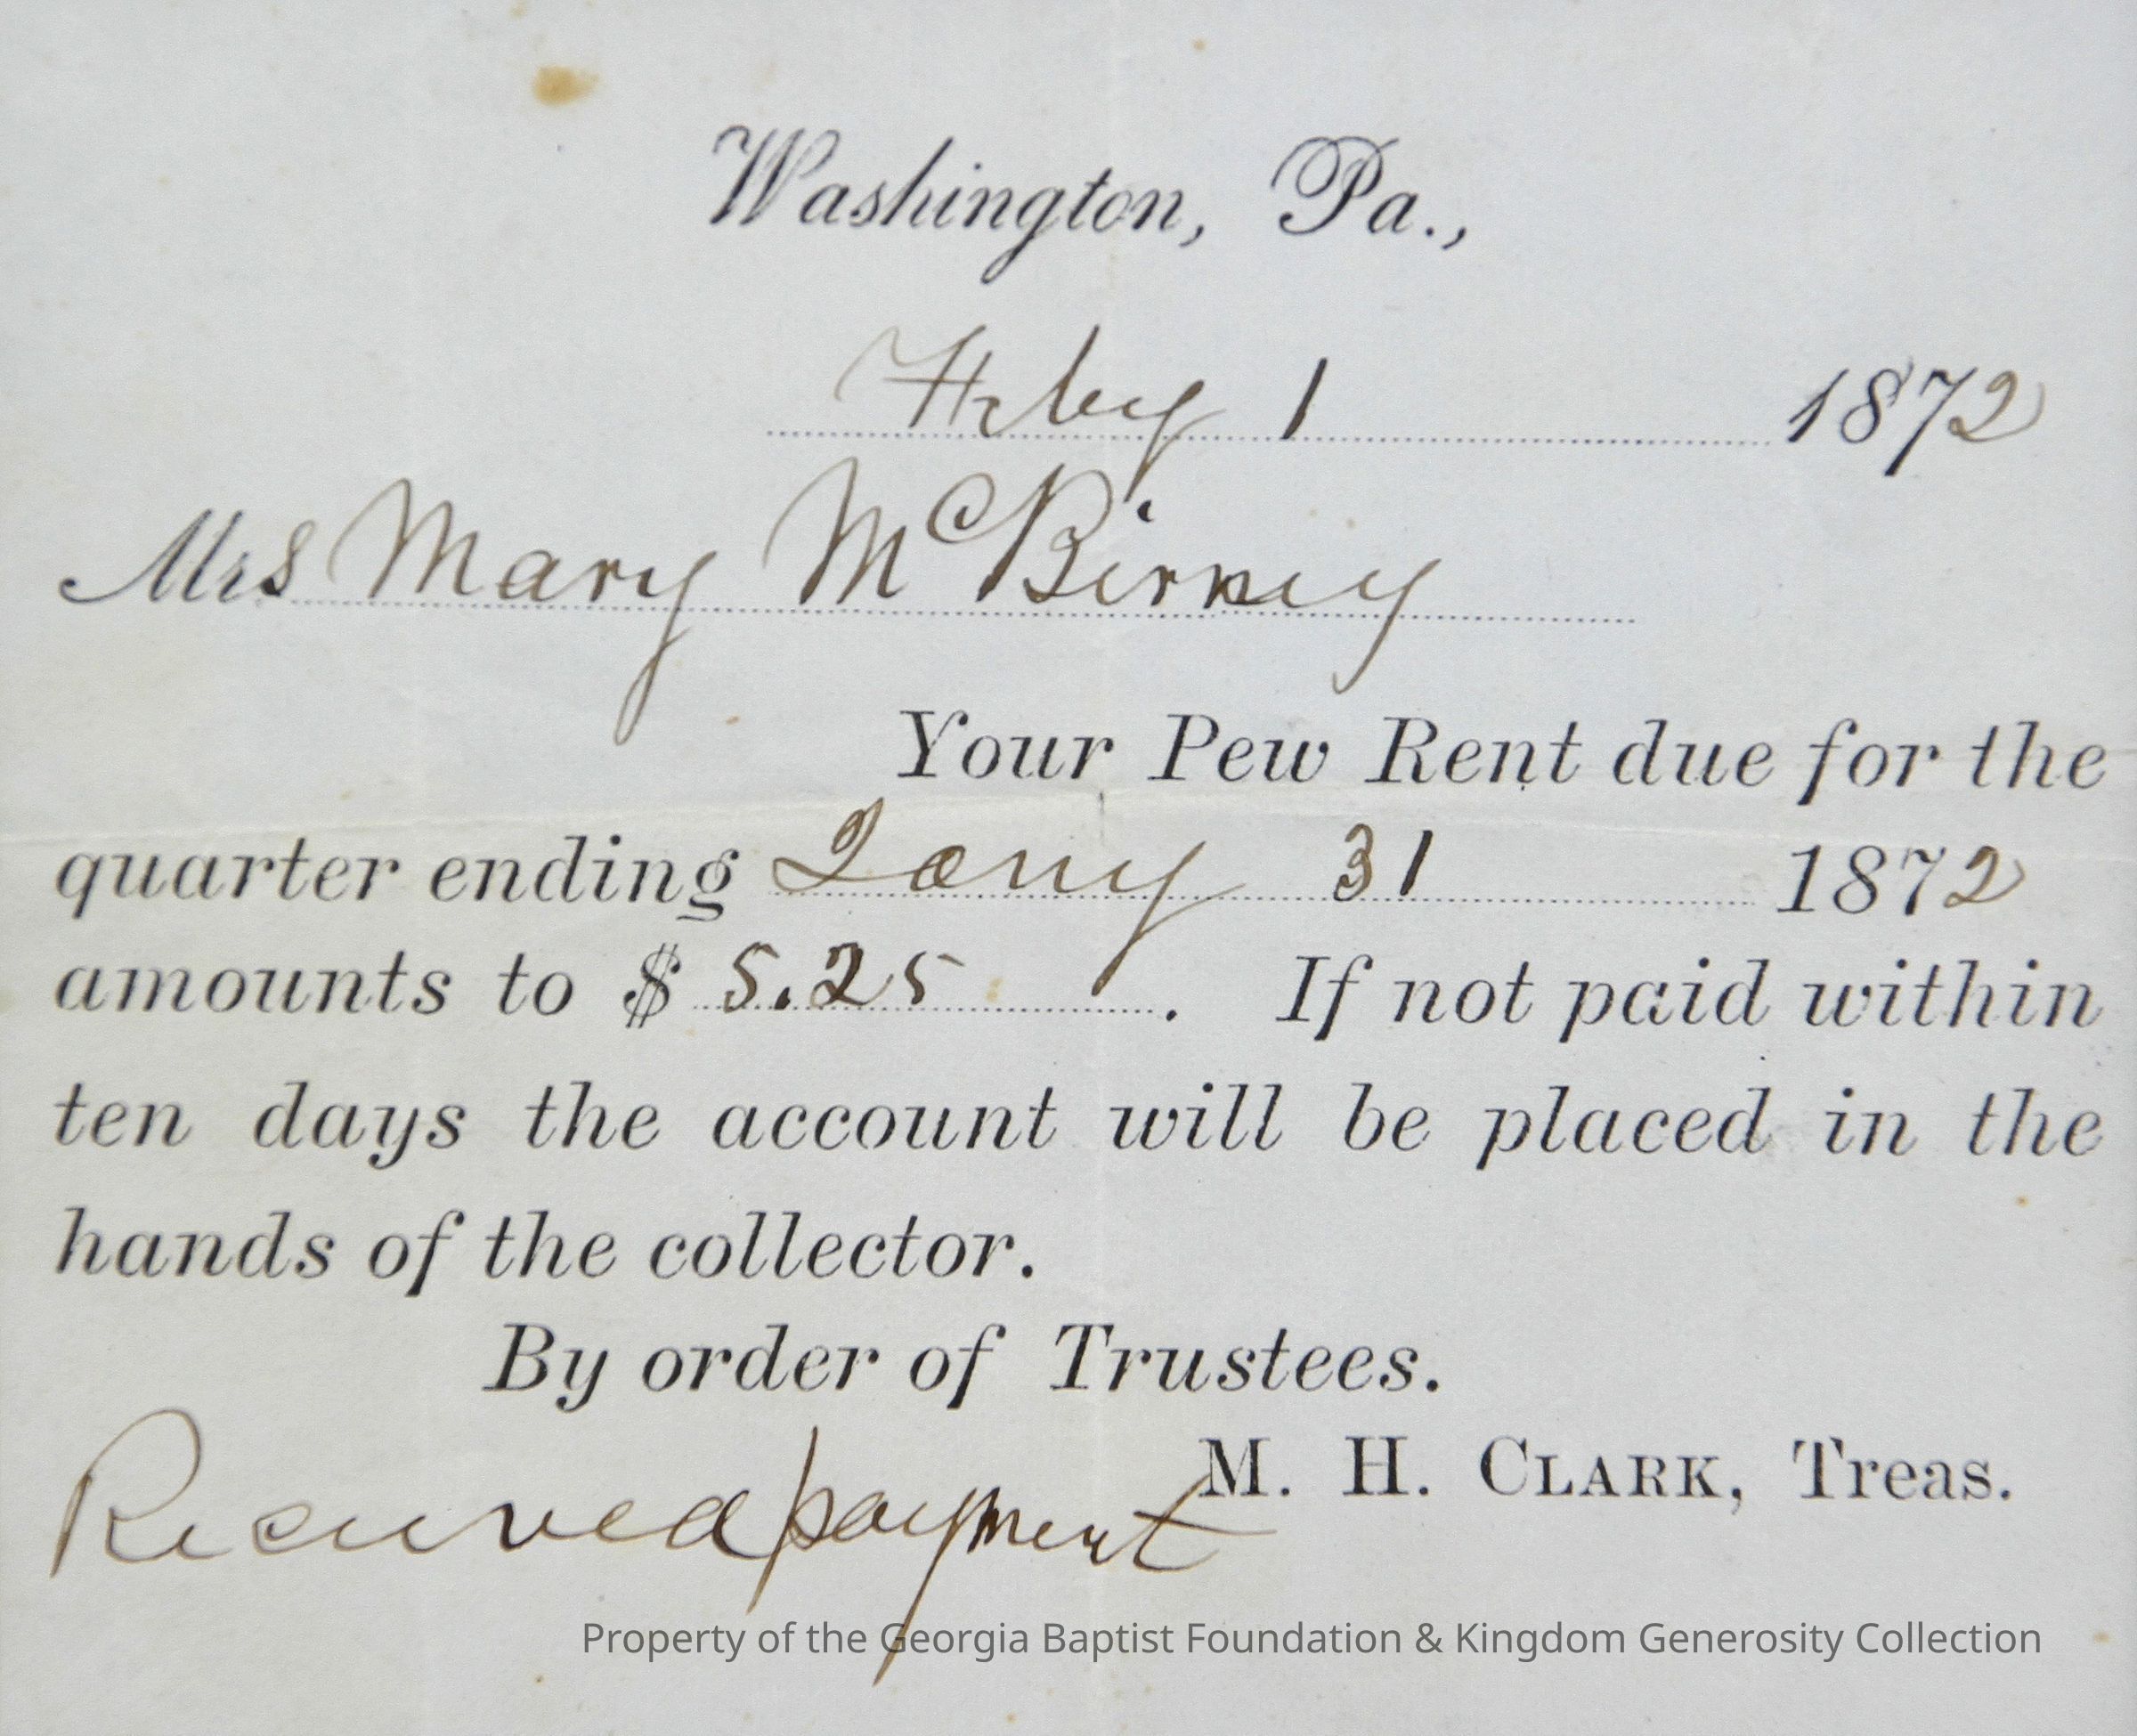 Washington, Pa.,
Feby 1 1872
Mrs Mary McBirney
Your Pew Rent due for the
quarter ending Jany 31 1872
amounts to $ 5.25 . If not paid within
ten days the account will be placed in the
hands of the collector.
By order of Trustees.
M. H. CLARK, Treas.
Received payment
Property of the Georgia Baptist Foundation & Kingdom Generosity Collection